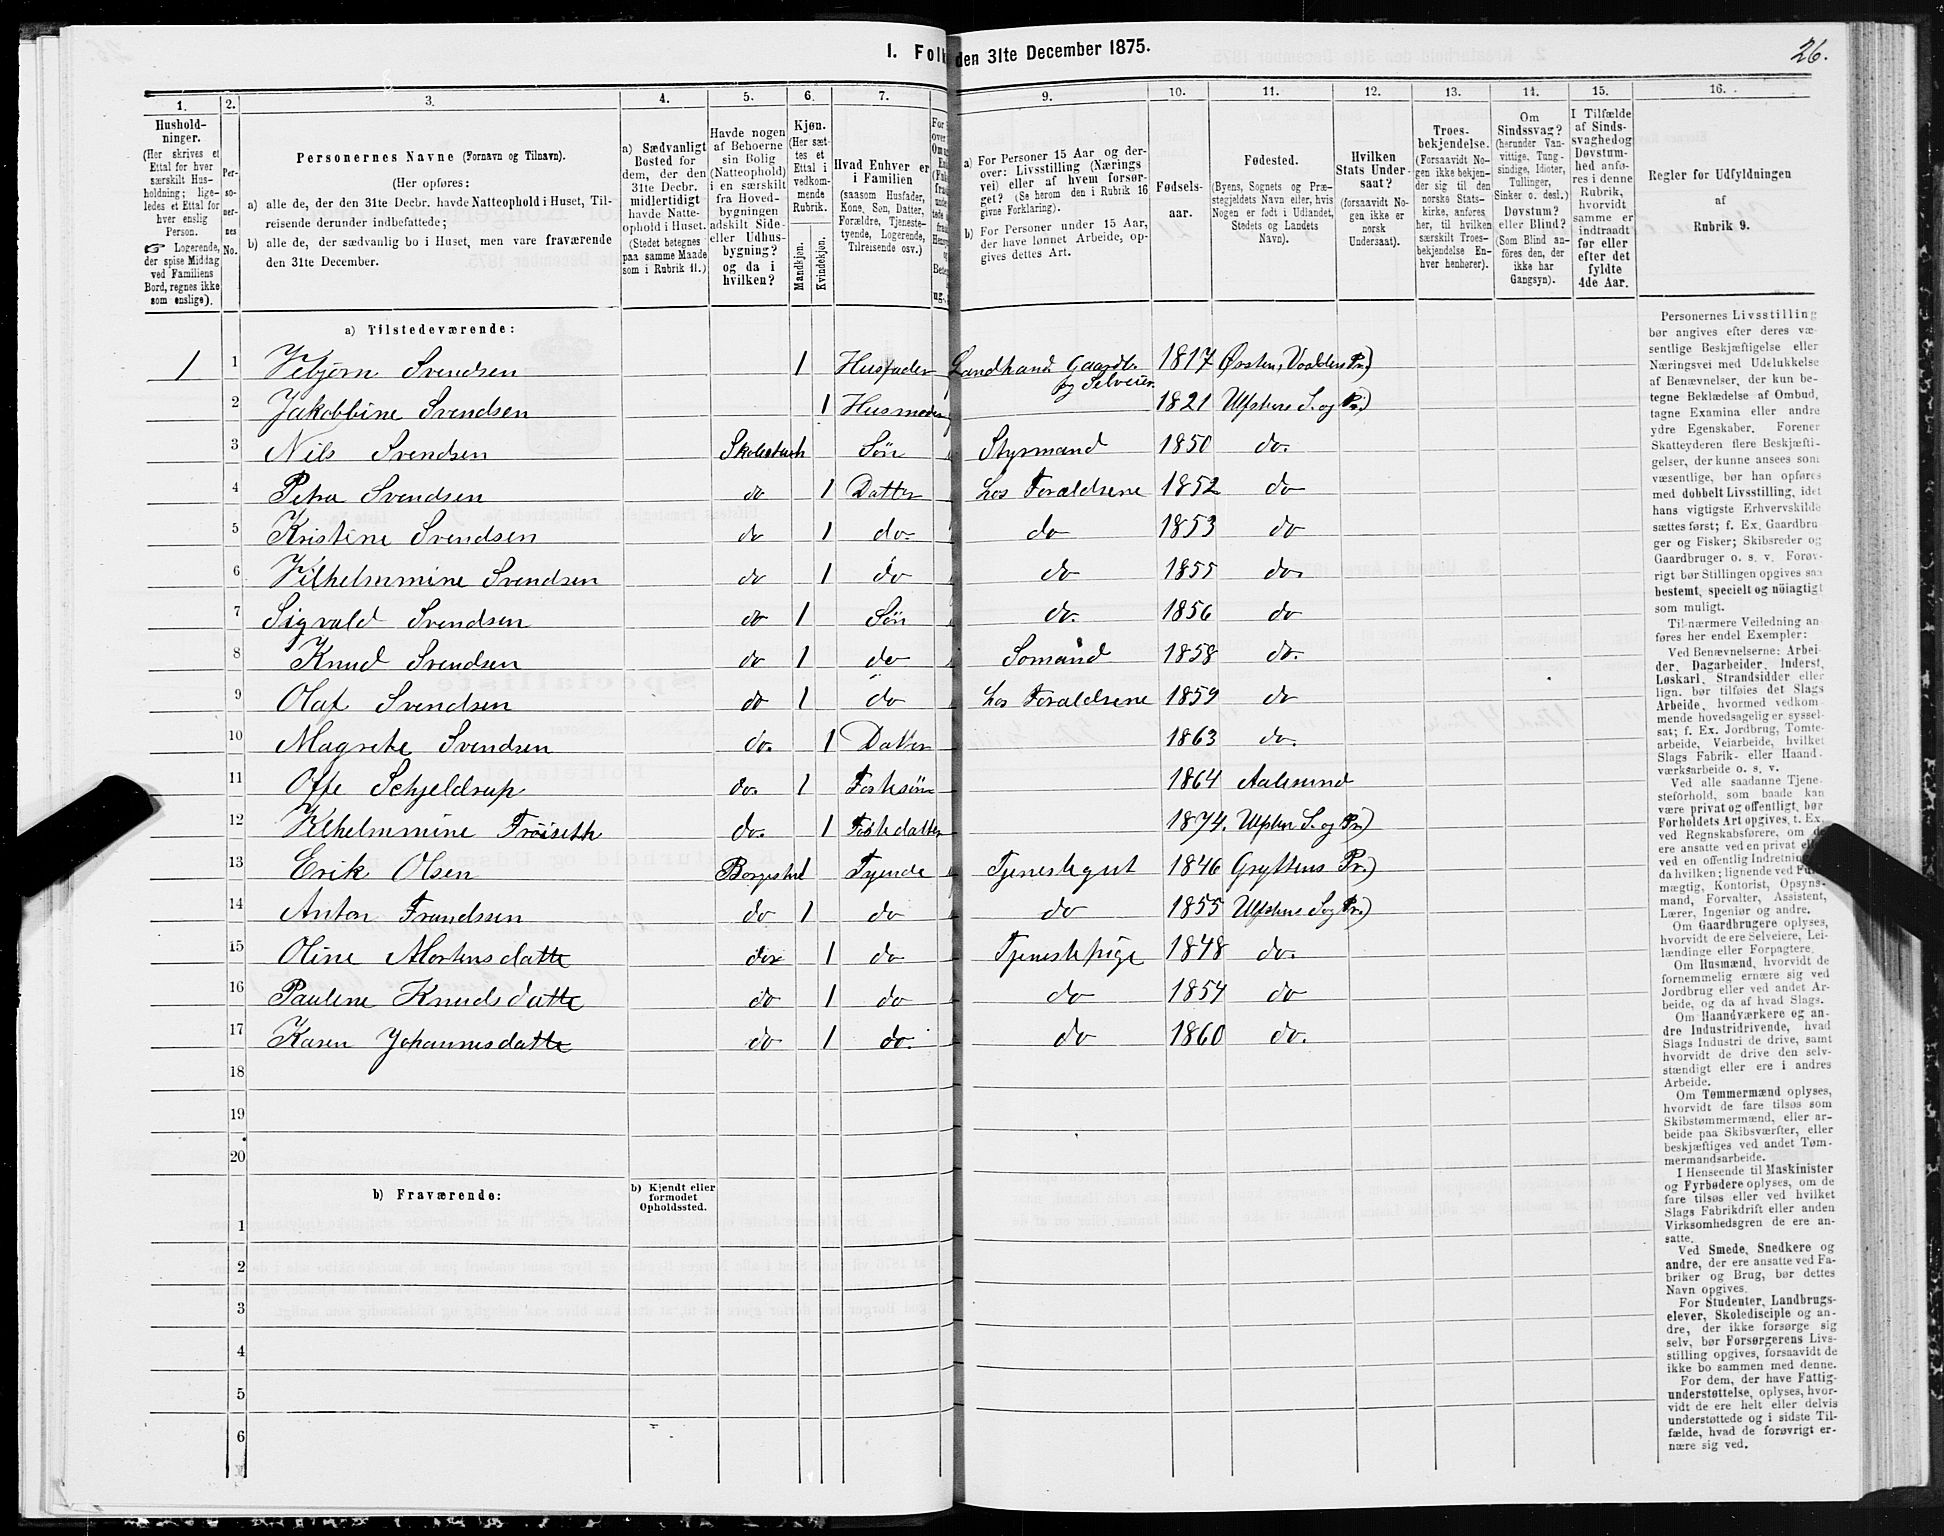 I. Folk
den 31te December 1875.
26.
1. 2. 3. 4. 5. 6. 7. 9. 10. 11. 12. 13. 14. 15. 16.
Hushold-
ninger.
(Her skrives et
Ettal for hver
særskilt Hus-
holdning; lige-
ledes et Ettal for
hver enslig
Person.
☞ Logerende,
der spise Middag
ved Familiens
Bord, regnes ikke
som enslige).
Per-
so-
ner-
nes
No.
Personernes Navne (Fornavn og Tilnavn).
(Her opføres:
a) alle de, der den 31te Decbr. havde Natteophold i Huset, Til-
reisende derunder indbefattede;
b) alle de, der sædvanlig bo i Huset, men vare fraværende
den 31te December.
a) Sædvanligt
Bosted for
dem, der den
31te Decbr.
midlertidigt
havde Natte-
ophold i Huset.
(Stedet betegnes
paa samme Maade
som i Rubrik 11.)
Havde nogen
af Beboerne
sin Bolig
(Natteophold)
i en særskilt
fra Hoved-
bygningen
adskilt Side-
eller Udhus-
bygning?
og da i
hvilken?
Kjøn.
(Her sæt-
tes et
Ettal i
vedkom-
mende
Rubrik.
Mandkjøn.
Kvindekjøn.
Hvad Enhver er
i Familien
(saasom Husfader,
Kone, Søn, Datter,
Forældre, Tjeneste-
tyende, Logerende,
Tilreisende osv.)
a) For Personer 15 Aar og der-
over: Livsstilling (Nærings-
vei) eller af hvem forsør-
get? (Se herom den i Rubrik 16
givne Forklaring).
b) For Personer under 15 Aar,
der have lønnet Arbeide, op-
gives dettes Art.
Fødsels-
aar.
Fødested.
(Byens, Sognets og Præ-
stegjeldets Navn eller, hvis
Nogen er født i Udlandet,
Stedets og Landets
Navn).
Hvilken
Stats Under-
saat?
(forsaavidt No-
gen ikke er
norsk
Undersaat).
Troes-
bekjendelse.
(Forsaavidt No-
gen ikke bekjen-
der sig til den
norske Stats-
kirke, anføres
her, til hvilken
særskilt Troes-
bekjendelse En-
hver henhører).
Om
Sindssvag?
(herunder Van-
vittige, Tung-
sindige, Idioter,
Tullinger,
Sinker o. desl.)
Døvstum?
eller Blind?
(Som Blind an-
føres den, der
ikke har
Gangsyn).
I Tilfælde
af Sinds-
svaghed og
Døvstum-
hed anfø-
res i denne
Rubrik,
hvorvidt
samme er
indtraadt
før eller
efter det
fyldte
4de Aar.
Regler for Udfyldningen
af
Rubrik 9.
a) Tilstedeværende:
1 1 Vebjørn Svendsen 1 Husfader Landhand Gaardb. og Selveier 1817 Ørsten, Voldens Pr.)
2 Jakobbine Svendsen 1 Husmoder 1821 Ulfstens S. og Pr.)
3 Nils Svendsen Søn Styrmand 1850 do.
4 Petra Svendsen do 1 Datter hos Forældrene 1852 do
5 Kristine Svendsen do 1 do. do 1853 do
6 Vilhelmmine Svendsen do 1 do do 1855 do.
7 Sigvald Svendsen do 1 Søn do. 1856 do
8 Knud Svendsen do 1 do Somand 1858 do.
9 Olaf Svendsen do 1 do hos Forældrene 1859 do
10 Magrete Svendsen do. 1 Datter 1863 do.
11 Offe Schjeldrup do. 1 Fostersøn 1864 Aalesund
12 Vilhelmmine Frøiseth do. 1 Fosterdatter 1874. Ulfsten S. og Pr.)
13 Erik Olsen Borgestue 1 Tyende Tjenestegut 1846 Gryttens Pr.)
14 Anton Frandssen do 1 do do 1855 Ulfstens S og Pr.)
15 Oline Mortensdatte do 1 do Tjenestepige 1848 do.
16 Pauline Knudsdatte do 1 do do 1854 do
17 Karen Johannesdatte do 1 do. do 1860 do.
18
19
20
b) Fraværende:
b) Kjendt eller
formodet
Opholdssted.
1
2
3
4
5
6
Personernes Livsstilling
bør angives efter deres væ-
sentlige Beskjæftigelse eller
Næringsvei med Udelukkelse
af Benævnelser, der kun be-
tegne Beklædelse af Ombud,
tagne Examina eller andre
ydre Egenskaber. Forener
Skatteyderen flere Beskjæfti-
gelser, der kunne ansees som
væsentlige, bør han opføres
med dobbelt Livsstilling, idet
hans vigtigste Erhvervskilde
sættes først; f. Ex. Gaardbru-
ger og Fisker; Skibsreder og
Gaardbruger o. s. v. Forøv-
rigt bør Stillingen opgives saa
bestemt, specielt og nöiagtigt
som muligt.
Til nærmere Veiledning an-
føres her endel Exempler:
Ved Benævnelserne: Arbei-
der, Dagarbeider, Inderst,
Løskarl, Strandsidder eller
lign. bør tilføies det Slags
Arbeide, hvormed vedkom-
mende hovedsagelig er syssel-
sat; f. Ex. Jordbrug, Tomte-
arbeide, Veiarbeide, hvilket
Slags Fabrik- eller Haand-
værksarbeide o. s. v.
Ved alle saadanne Tjene-
steforhold, som baade kan
være privat og offentligt, bør
Forholdets Art opgives, t. Ex.
ved Regnskabsførere, om de
ere ansatte ved en privat eller
ved en offentlig Indretning og
da hvilken; lignende ved Fuld-
mægtig, Kontorist, Opsyns-
mand, Forvalter, Assistent,
Lærer, Ingeniør og andre.
Om Gaardbrugere oplyses,
hvorvidt de ere Selveiere, Lei-
lændinge eller Forpagtere.
Om Husmænd, hvorvidt de
fornemmelig ernære sig ved
Jordbrug eller ved andet Ar-
beide, og da af hvad Slags.
Om Haandværkere og an-
dre Industridrivende, hvad
Slags Industri de drive, samt
hvorvidt de drive den selv-
stændigt eller ere i andres
Arbeide.
Om Tømmermænd oplyses,
hvorvidt de fare tilsøs som
Skibstømmermænd, eller ar-
beide paa Skibsværfter, eller
beskjæftiges ved andet Tøm-
mermandsarbeide.
I Henseende til Maskinister
og Fyrbødere oplyses, om de
fare tilsøs eller ved hvilket
Slags Fabrikdrift eller anden
Virksomhedsgren de ere an-
satte.
Ved Smede, Snedkere og
andre, der ere ansatte ved Fa-
briker og Brug, bør dettes
Navn opgives.
For Studenter, Landbrugs-
elever, Skoledisciple og an-
dre, der ikke forsørge sig
selv, bør Forsørgerens Livs-
stilling opgives, forsaavidt de
ikke bo sammen med denne.
For dem, der have Fattig-
understøttelse, oplyses, hvor-
vidt de ere helt eller delvis
understøttede og i sidste Til-
fælde, hvad de forøvrigt er-
nære sig ved.